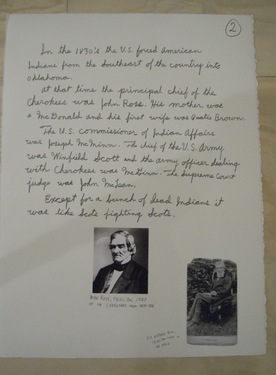 2
In the 1830's the U.S. forced American
Indians from the Southeast of the country into
Oklahoma.
At that time the principal chief of the
Cherokees was John Ross. His mother was
a McDonald and his first wife was Quatie Brown.
The U.S. commissioner of Indian Affairs
was Joseph McMinn. The chief of the U.S. Army
was Winfield Scott and the army officer dealing
with Cherokees was McGinn. The Supreme Court
judge was John McLean.
Except for a bunch of dead Indians it
was like Scots fighting Scots.
John Ross, Principal Chief
of the Cherokees from